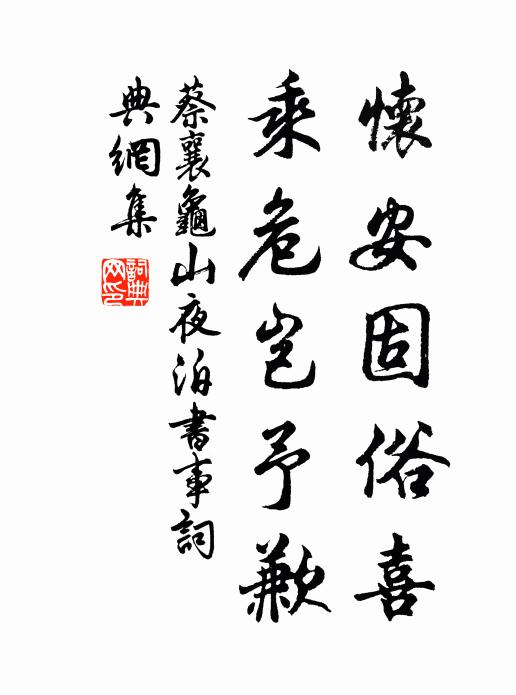 懷安固俗喜
乘危豈予歉
蔡襄龜山夜泊書事詞
典網集
詞典
网印